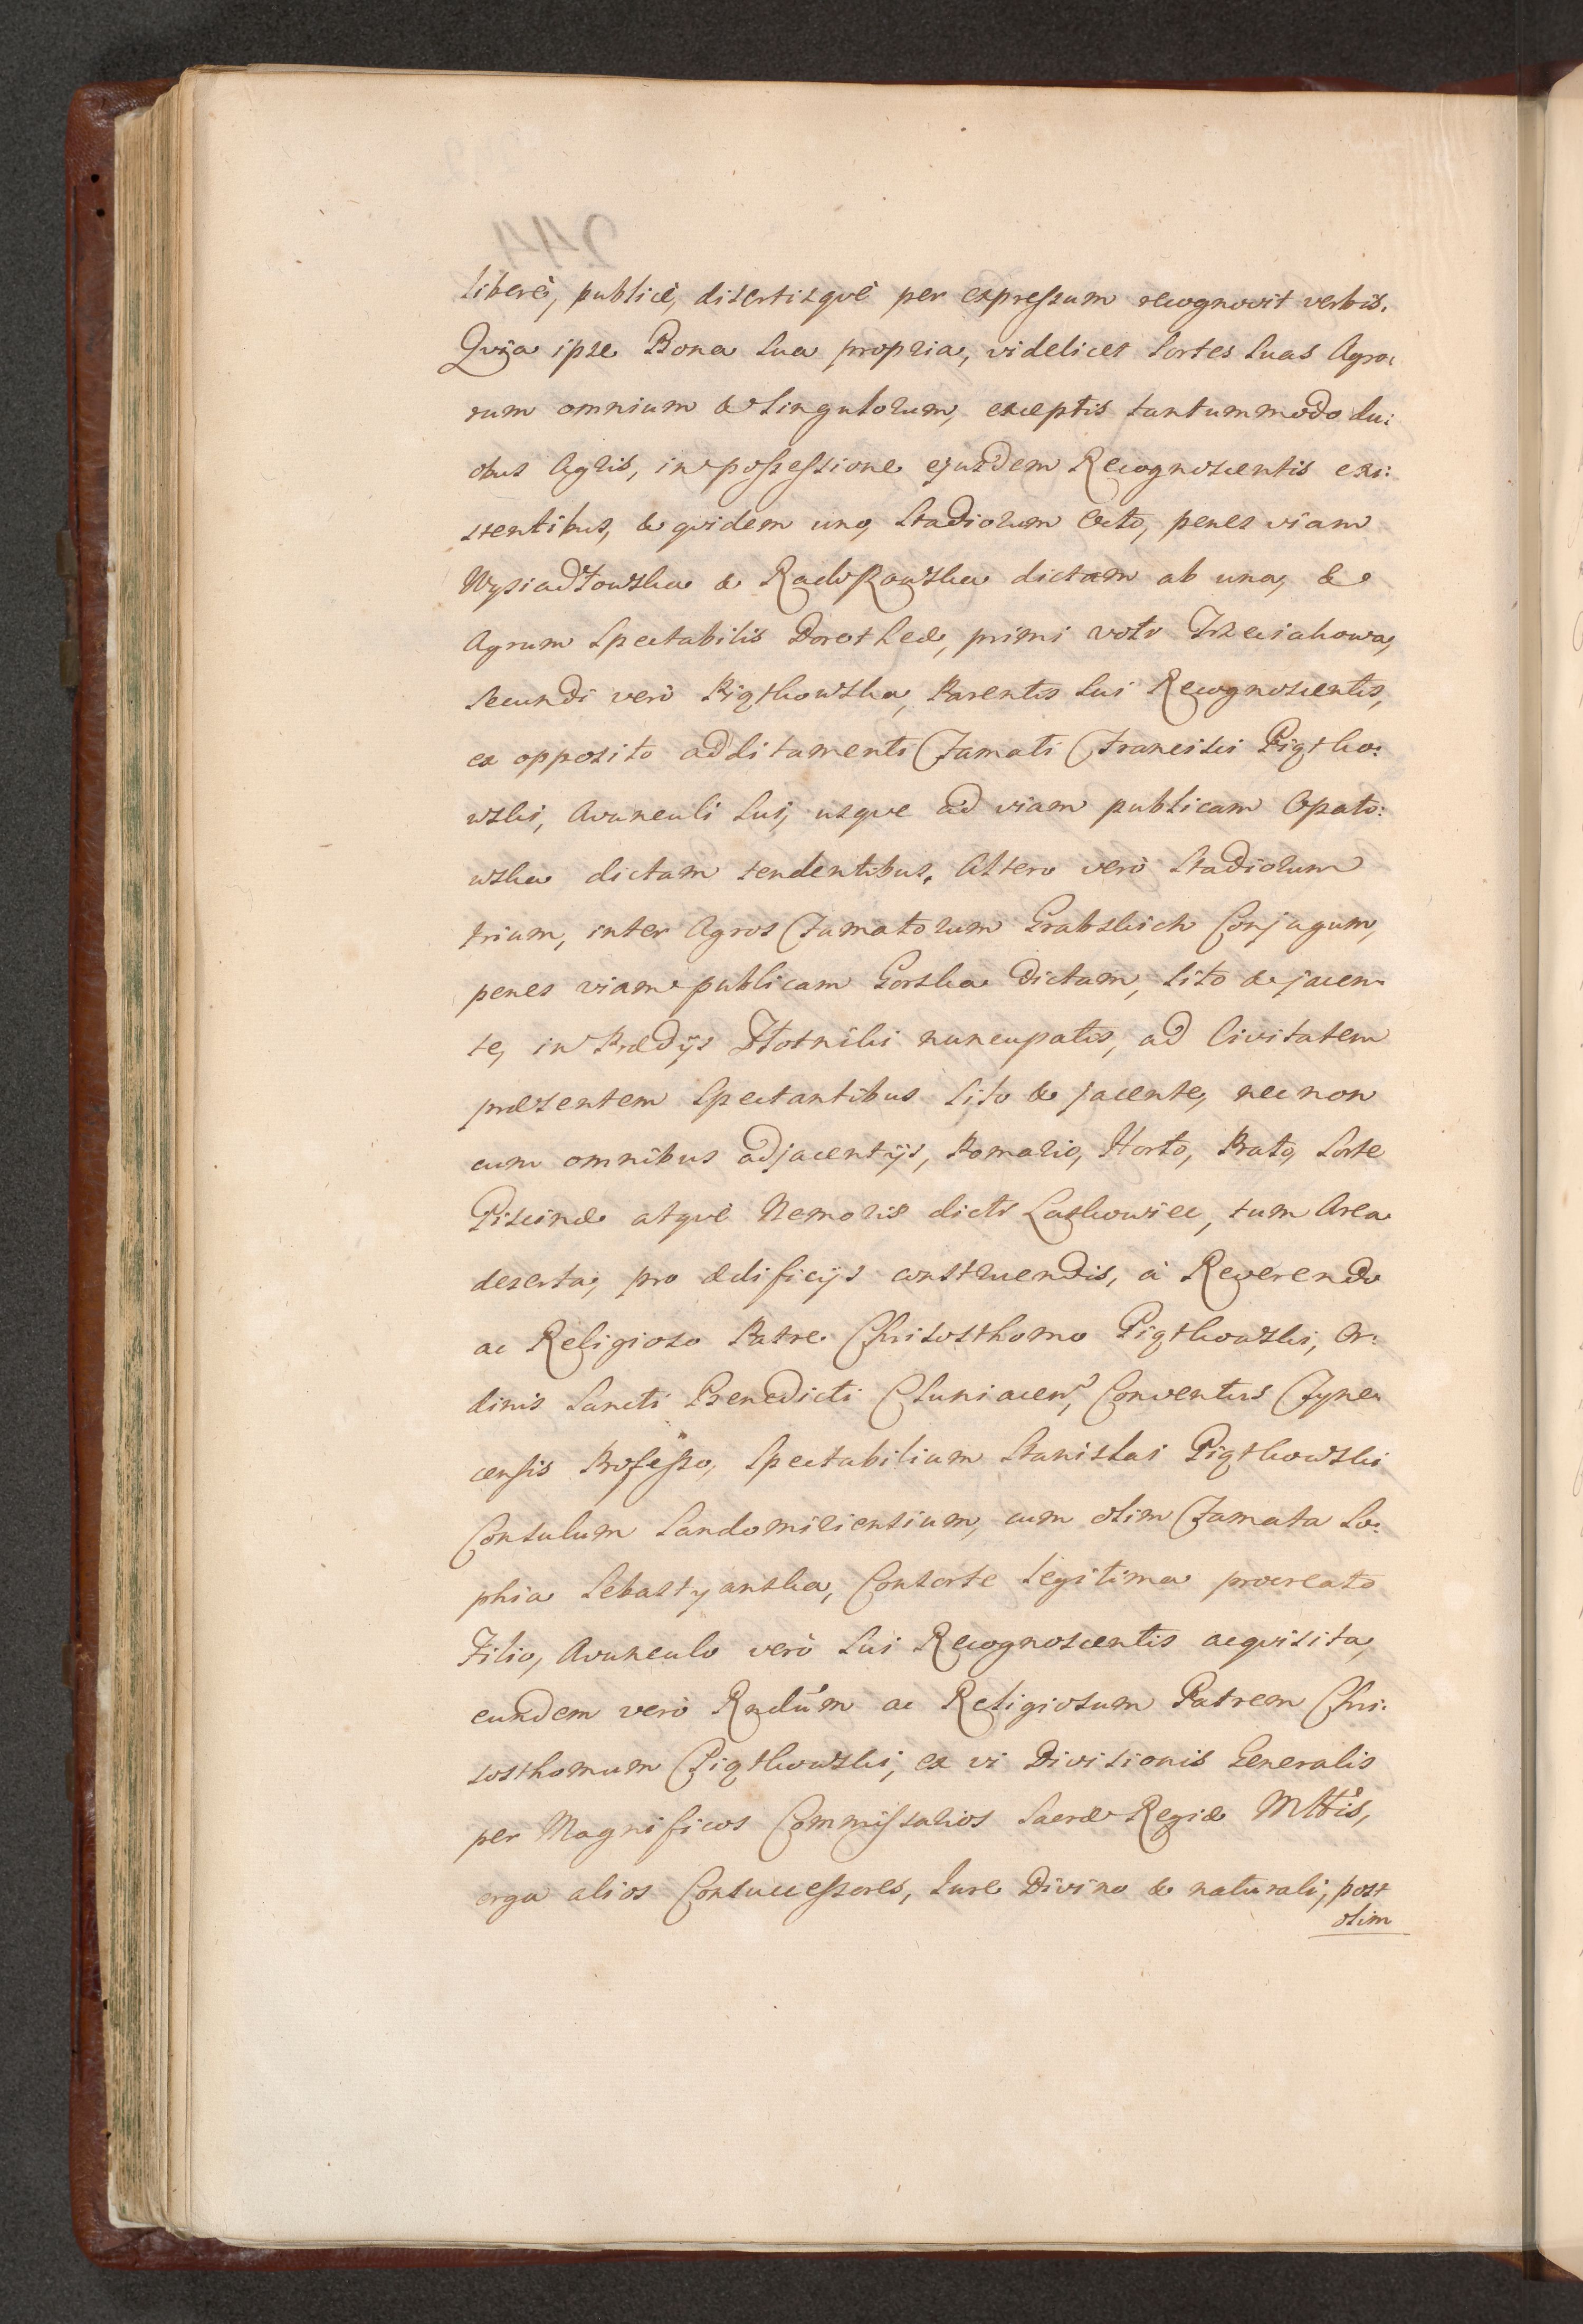 liberè, publicè, disertisqvè per expressum recognovit verbis.
Qvia ipse Bona Sua propria, videlicet Sortes Suas Agro:
rum omnium & Singulorum, exceptis tantummodo du:
obus Agris, in possessione ejusdem Recognoscentis exi:
stentibus, & qvidem uno, Stadiorum Octo, penes viam
Wysiadłowska & Radoszowska dictam ab una, &
Agrum Spectabilis Dorotheæ, primi voti Trzeciakowa,
Secundi verò Piątkowska, Parentis Sui Recognoscentis,
ex opposito additamenti Famati Francisci Piątko:
wski, Avunculi Sui, usqve ad viam publicam Opato:
wska dictam tendentibus. Altero verò Stadiorum
trium, inter Agros Famatorum Grabskich Conjugum,
penes viam publicam Gorska dictam, Sito & jacen:
te, in Prædijs Stotniki nuncupatis, ad Civitatem
præsentem Spectantibus Sito & jacente, nec non
cum omnibus adjacentijs, Pomario, Horto, Prato, Sorte
Piscinæ atqvè Nemoris dicti Laskowiec, tum Area
deserta, pro ædificijs construendis, à Reverendo
ac Religioso Patre Chrisosthomo Piątkowski, Or:
dinis Sancti Benedicti Cluniacen, Conventus Tyne:
censis Professo, Spectabilium Stanislai Piątkowski
Consulum Sandomiriensium, cum olim Famata So:
phia Sebastyanska, Consorte legitima procreato
Filio, Avunculo verò Sui Recognoscentis acqvisita,
eundem verò Rndum ac Religiosum Patrem Chri:
sosthomum Piątkowski, ex vi Divisionis Generalis
per Magnificos Commissarios Sacræ Regiæ Mttis,
erga alios Consuccessores, Iure Divino & naturali, post
olim